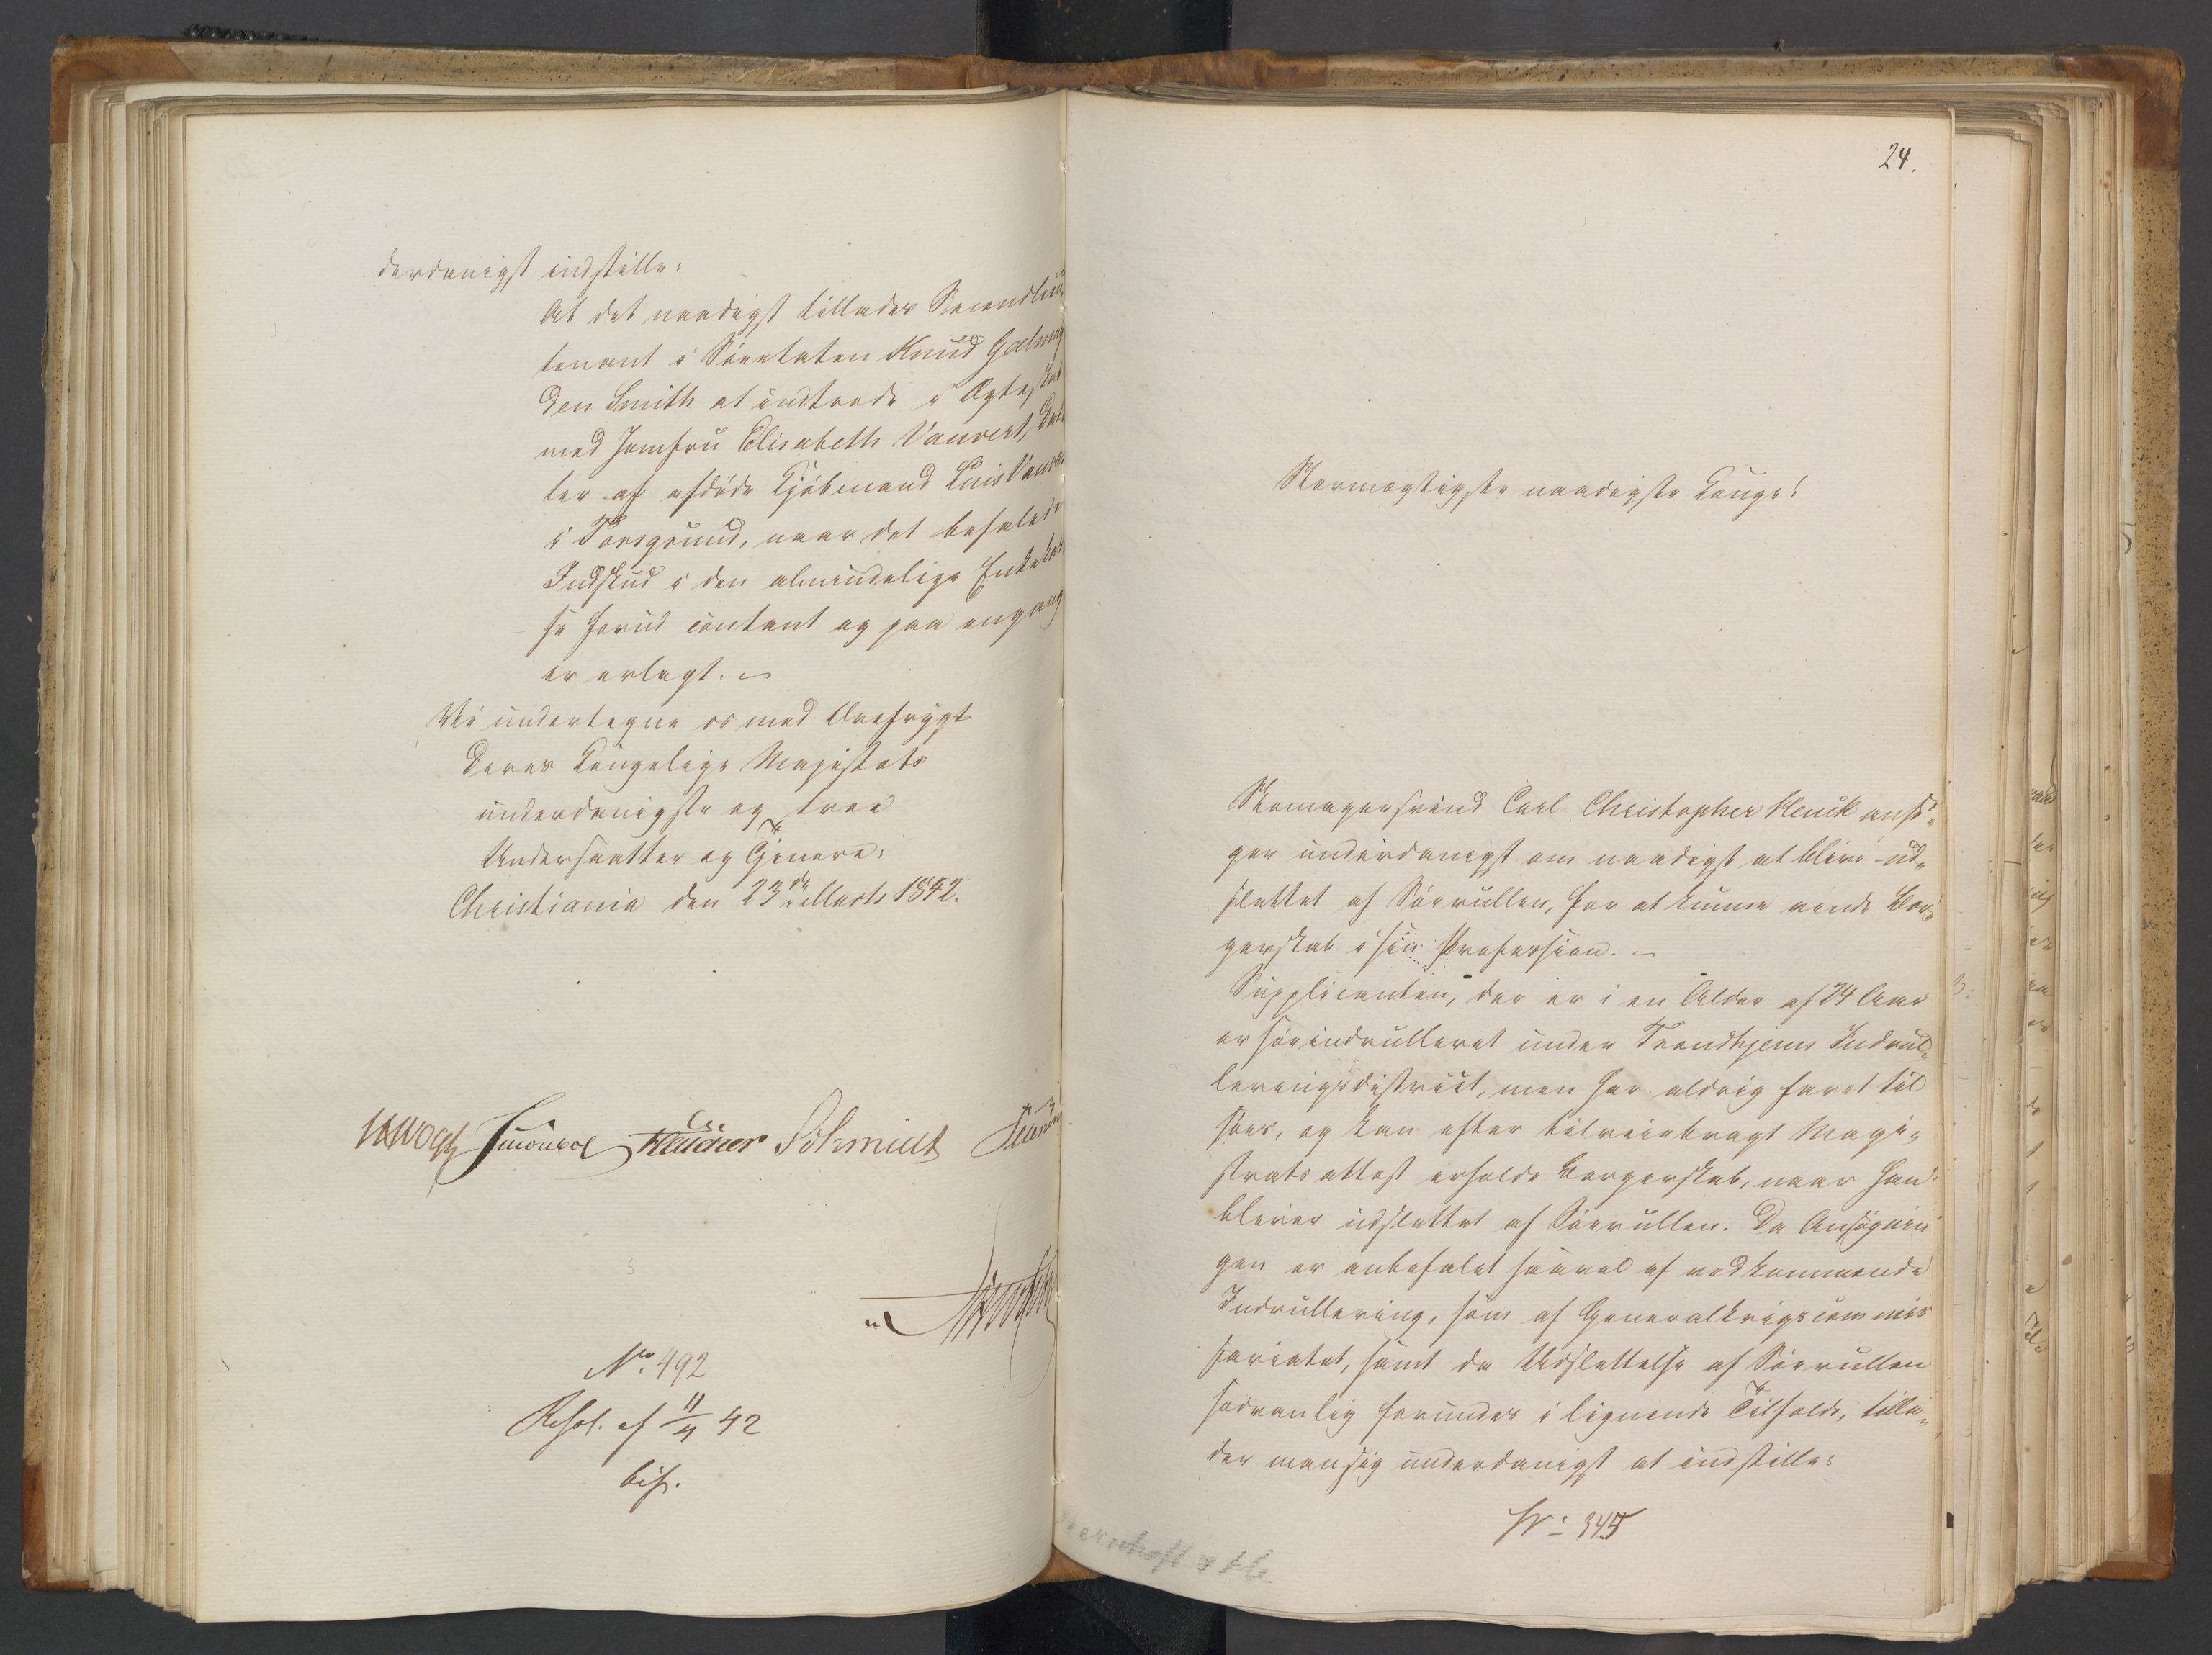 derdanigst indstille:
At det naadigst tillades Secondlieu-
tenant i Söeetaten Knud Gelmuy
den Smith at indtræde i Ægteskab
med Jomfru Elisabeth Vauvert, Dat-
ter af afdöde Kjöbmand Luis Vauvert
i Porsgrund, naar det befalede
Indskud i den almindelige Enkekas-
se forud contant og paa engang
er erlagt.
Vi undertegne os med Ærefrygt
Deres Kongelige Majestæts
underdanigste og troe
Undersaatter og Tjenere.
Christiania den 23de Marts 1842.
Schmidt
No. 492
Resol. af 11/4 42
bif.
24.
Stormægtigste naadigste Konge!
Skomagersvend Carl Christopher Kluck ansö-
ger underdanigst om naadigst at blive ud-
slettet af Söerullen, for at kunne vinde Bor-
gerskab i sin Profession.
Supplicanten, der er i en Alder af 24 Aar
er söeindrulleret under Trondhjems Indrul-
leringsdistrict, men har aldrig faret til
söes, og kan efter tilveiebragt Magi-
stratsattest erholde Borgerskab, naar han
bliver udslettet af Söerullen. Da Ansögnin
gen er anbefalet saavel af vedkommende
Indrullering, som af Generalkrigscommis
sariatet, samt da Udslettelse af Söerullen
sædvanlig forundes i lignende Tilfælde, tilla-
der man sig underdanigst at indstille:
No. 345